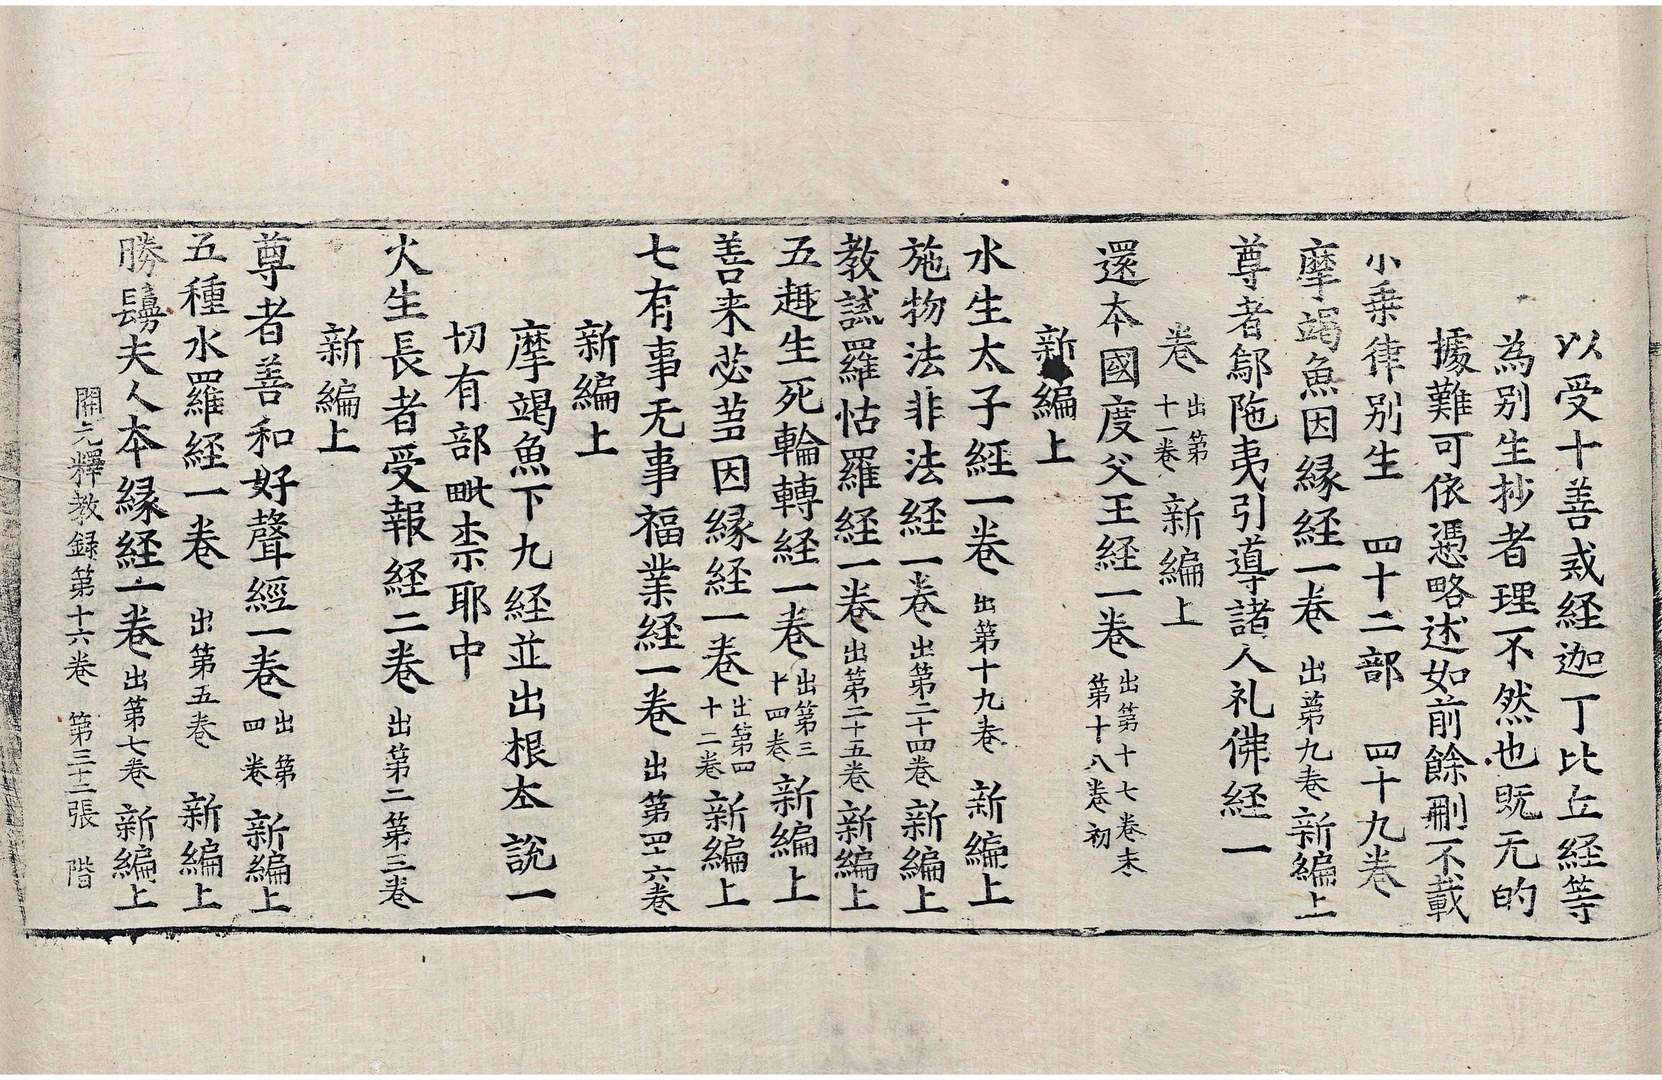 以受十善戒経迦丁比丘経等
為別生抄者理不然也既无的
據難可依憑略述如前餘刪不載
小乗律別生 四十二部 四十九巻
摩竭魚因縁経一巻 出苐九巻 新編上
尊者鄔陁夷引導諸人礼佛経一
巻 出第十一巻 新編上
還本國度父王経一巻 出第十七巻末第十八巻初
新編上
水生太子経一巻 出第十九巻 新編上
施物法非法経一巻 出第二十四巻 新編上
教誡羅怙羅経一巻 出第二十五巻 新編上
五趣生死輪轉経一巻 出第三十四巻 新編上
善来苾芻因縁経一巻 出第四十二巻 新編上
七有事无事福業経一巻 出第四十六巻
新編上
摩竭魚下九経並出根夲說一
切有部毗柰耶中
火生長者受報経二巻 出第二第三巻
新編上
尊者善和好聲經一巻 出第四巻 新編上
五種水羅経一巻 出第五巻 新編上
勝鬘夫人本縁経一巻 出第七巻 新編上
開元釋教録第十六巻 第三十二張 階